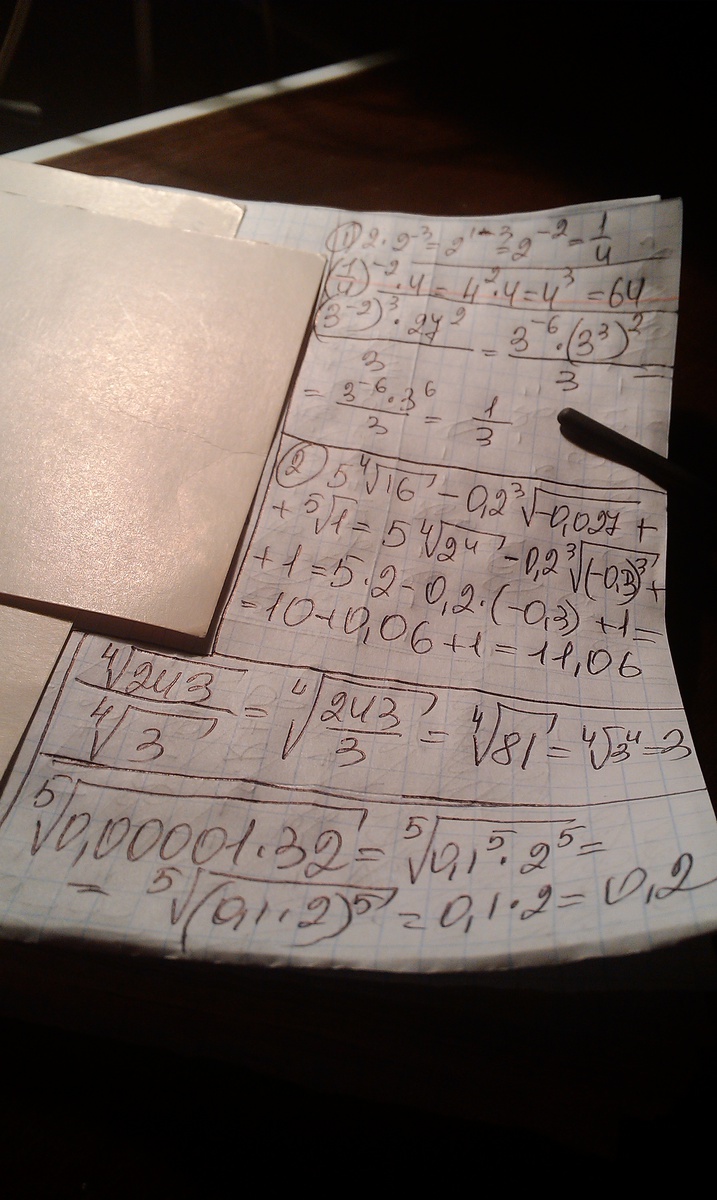 ① 2·2⁻³ = 2¹⁻³ = 2⁻² = 1/4
(1/4)⁻²·4 = 4²·4 = 4³ = 64
(3⁻²)³·27²/3 = 3⁻⁶·(3³)²/3 =
= 3⁻⁶·3⁶/3 = 1/3
② 5⁴√16 - 0,2³√-0,027 +
+ ⁵√1 = 5⁴√2⁴ - 0,2³√(-0,3)³ +
+ 1 = 5·2 - 0,2·(-0,3) + 1 =
= 10 + 0,06 + 1 = 11,06
⁴√243/⁴√3 = ⁴√243/3 = ⁴√81 = ⁴√3⁴ = 3
⁵√0,00001·32 = ⁵√0,1⁵·2⁵ =
= ⁵√(0,1·2)⁵ = 0,1·2 = 0,2